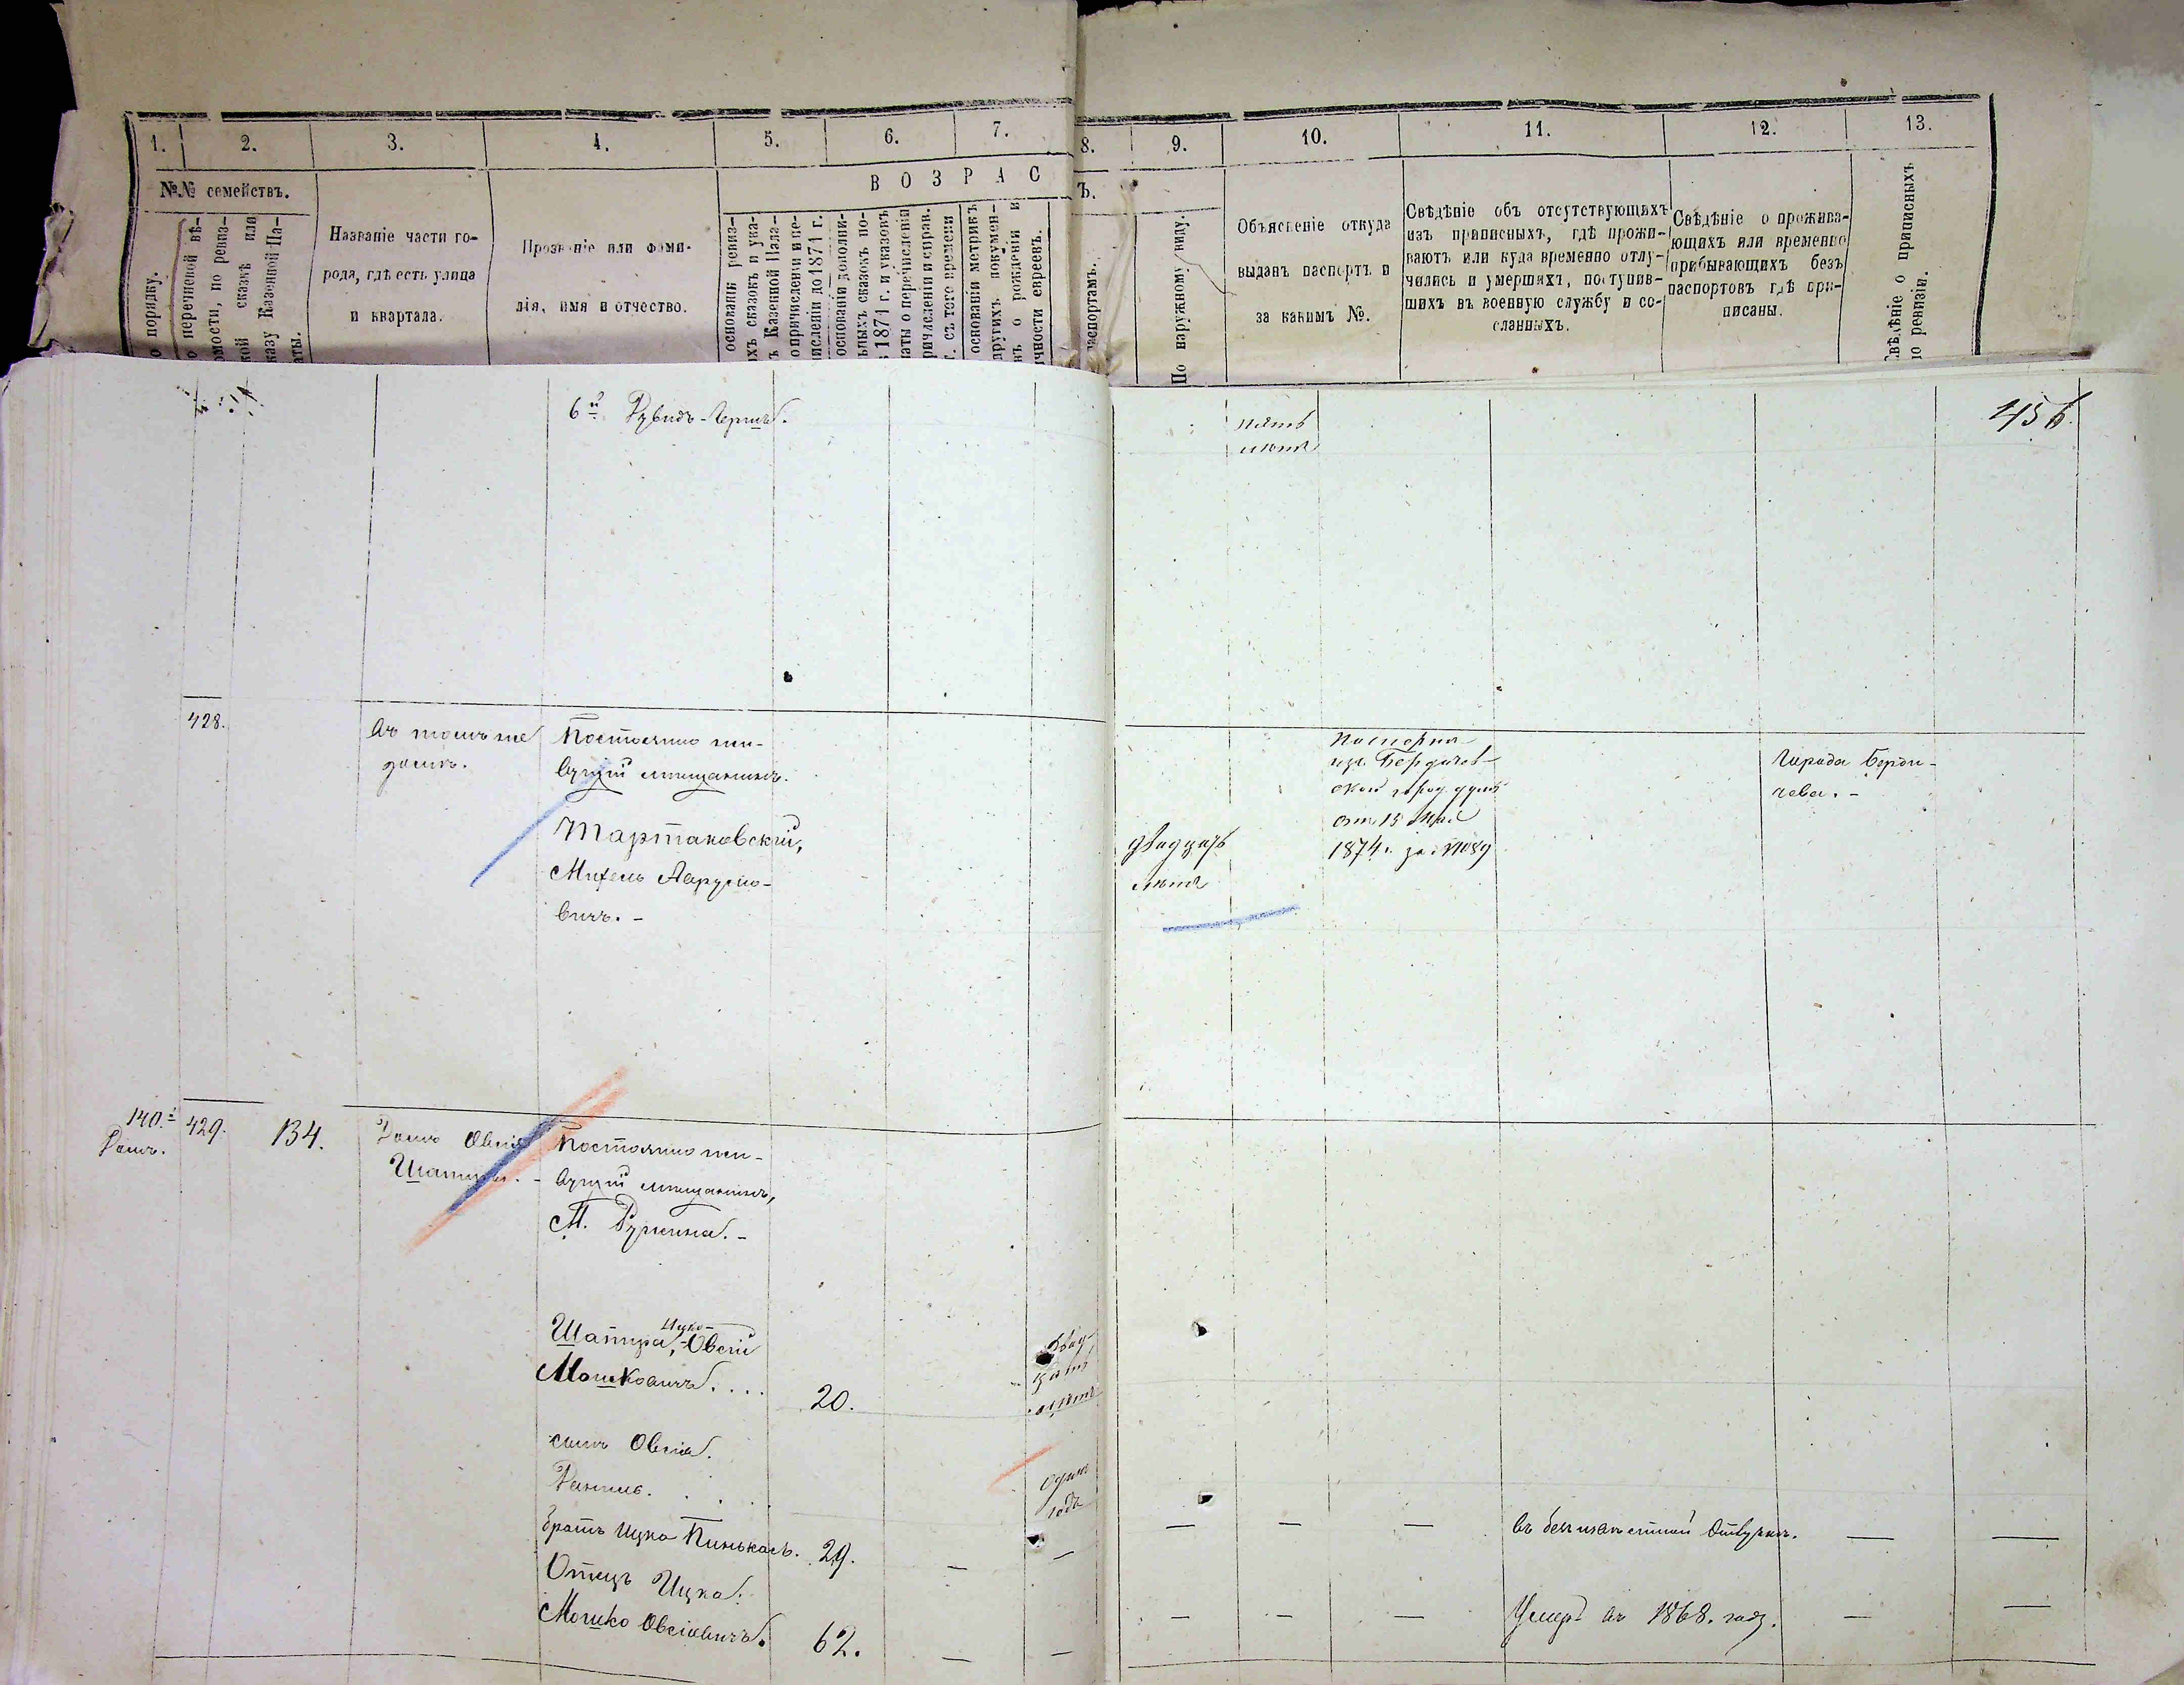 1. 2. 3. 4. 5. 6. 7. 8. 9. 10. 11. 12. 13.
№№ семействъ.
ВОЗРАСТЪ.
о порядку.
о перечневой вѣ-
омости, по ревиз-
кой сказкѣ или
казу Казенной Па-
аты.
Названіе части го-
рода, гдѣ есть улица
и квартала.
Прозваніе или фами-
лія, имя и отчество.
основаніи ревиз-
хъ сказокъ и ука-
ъ Казенной Пала-
о причисленіи и пе-
ислeніи до 1871 г.
основаніи дополни-
ьлыхъ сказокъ по-
ѣ 1871 г. и указовъ
аты о перечисленіи
ричисленіи и справ.
г. съ того времени
основаніи метрикъ
другихъ докумен-
въ о рожденіи и
ичности евреевъ.
аспортамъ.
По наружному виду.
Объясненіе откуда
выданъ паспортъ и
за какимъ №.
Свѣдѣніе объ отсутствующихъ
изъ приписныхъ, гдѣ прожи-
ваютъ или куда временно отлу-
чились и умершихъ, поступив-
шихъ въ военную службу и со-
сланныхъ.
Свѣдѣніе о прожива-
ющихъ или временно
прибывающихъ безъ
паспортовъ гдѣ при-
писаны.
Свѣдѣніе о приписныхъ
по ревизіи.
6й Рувидъ-Гершъ.
пять
лѣтъ
456
428.
Въ томъ же
домѣ.
Постоянно жи-
вущій мѣщанинъ.
Тартаковскій,
Михель Аарусио-
вичъ. -
двадцать
лѣтъ
Паспортъ
изъ Бердичев-
ской город. думы
отъ 15 Мая
1874. за №
Города Берди-
чева. -
140.й
Домъ.
429.
134.
Домъ Овсія
Шапиры. -
Постоянно жи-
вущій мѣщанинъ,
М. Ружина. -
Ицко-
Шапира, -Овсій
Мошковичъ. . . .
20.
двад-
цать
лѣтъ
сынъ Овсія.
. . .
одинъ
годъ
братъ Ицка Пинькасъ. 29. — — — — — въ безизвѣстной отлучкѣ. — —
Отецъ Ицка.
Мошко Овсіовичъ. 62. — — — — — Умеръ въ 1868. году. — —